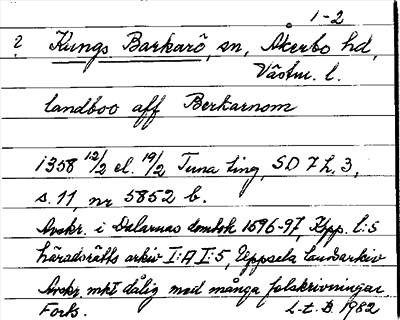 1-2
? Kungs Barkarö, sn, Åkerbo hd,
Västm. l.
landboo aff Berkarnom
1358 12/2 el. 19/2 Tuna ting, SD 7 h. 3,
s. 11, nr 5852 b.
Avskr. i Dalarnas dombok 1696-97, Kpp. l:s
häradsrätts arkiv I:A I:5, Uppsala landsarkiv
Avskr. mkt dålig med många felskrivningar
Fork. L-t. B. 1982